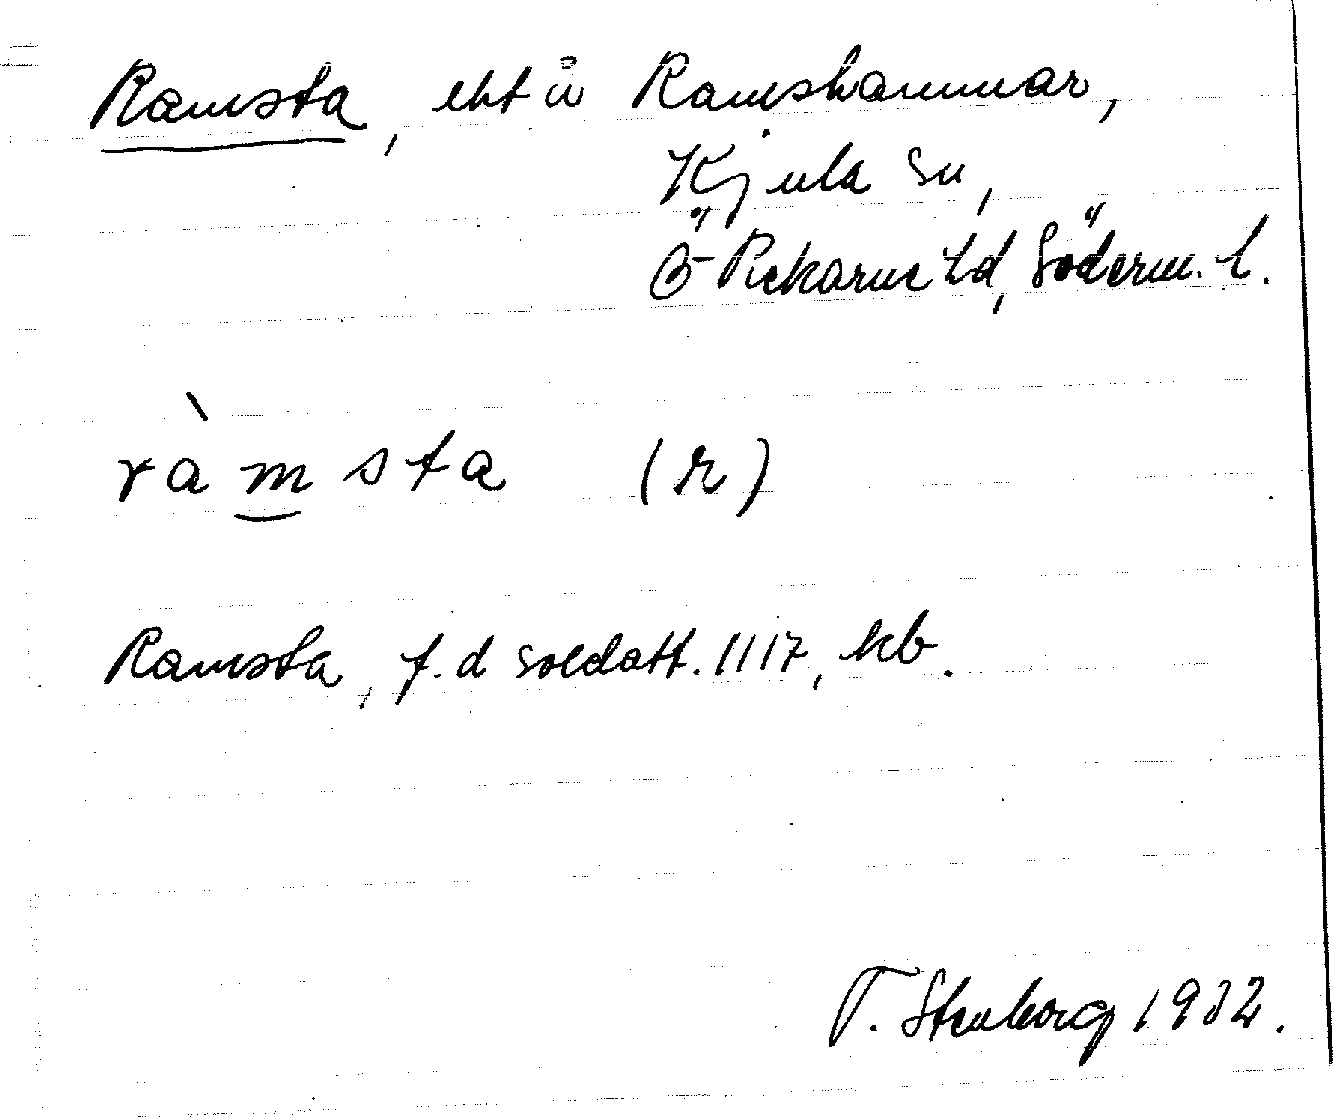 Ramsta, lht å Ramshammar,
Kjula sn,
Ö Rekarne hd, Söderm. l.
ràmsta (r)
Ramsta, f.d soldatt. 1117, kb.
T. Stenborg 1932.